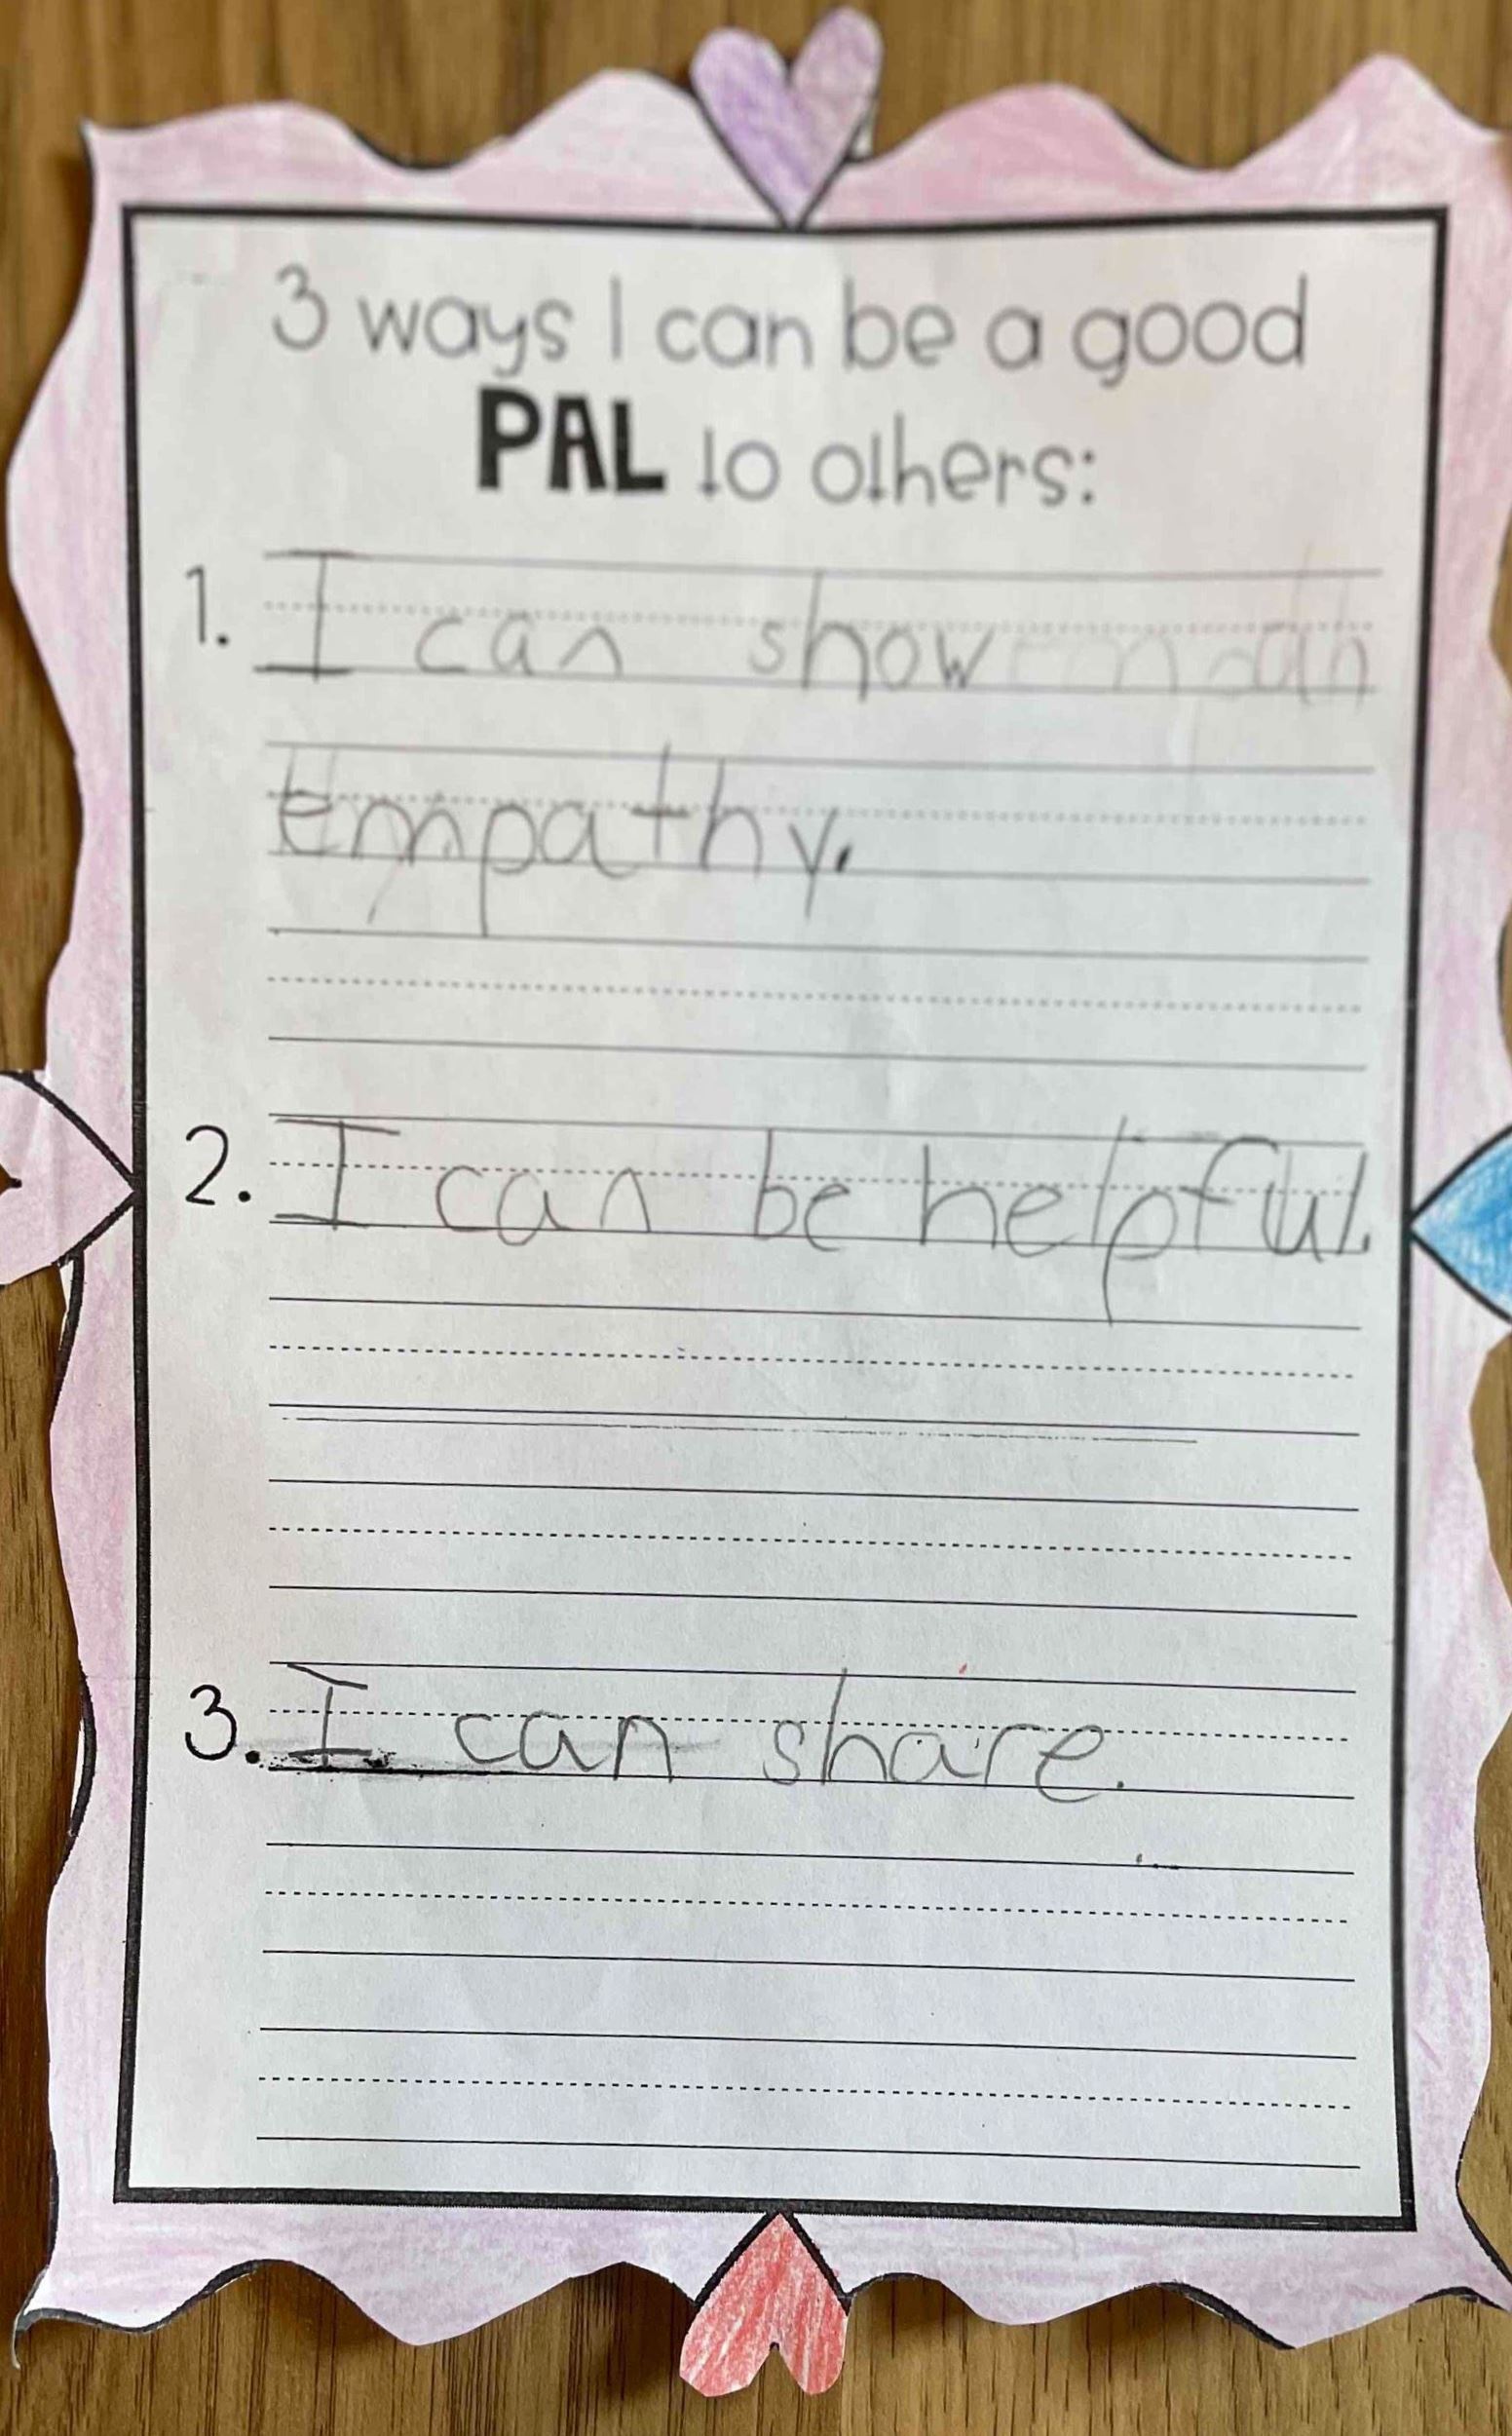 3 ways I can be a good
PAL to others:
1. I can show
empathy.
2. I can be helpful.
3. I can share.